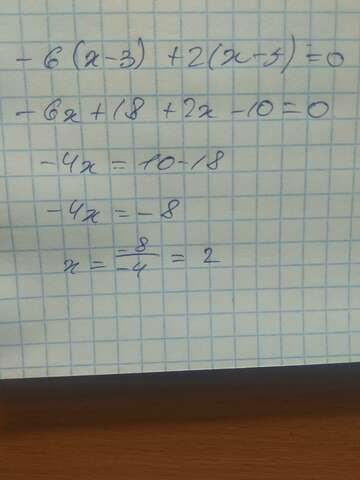 -6(x-3) +2(x-5)=0
-6x+18+2x-10=0
-4x=10-18
-4x=-8
x=-8/-4=2